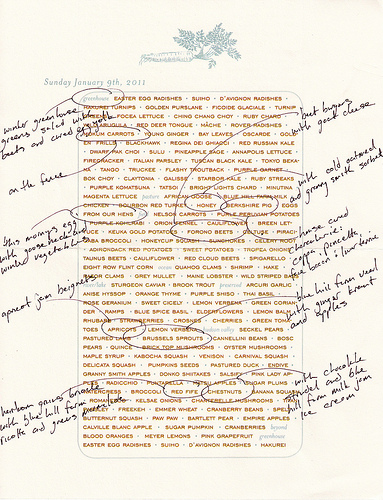 Sunday January 9th, 2011
greenhouse EASTER EGG RADISHES • SUIHO • D'AVIGNON RADISHES •
HAKUREI TURNIPS • GOLDEN PURSLANE • FICOIDE GLACIALE • TURNIP
GREENS FOCEA LETTUCE • CHING CHANG CHOY • RUBY CHARD •
ARUGULA • RED DEER TONGUE • MÂCHE • ROVER RADISHES •
CARROTS • YOUNG GINGER • BAY LEAVES • OSCARDE • GOLD-
EN FRILLS • BLACKHAWK • REGINA DEI GHIACCI • RED RUSSIAN KALE
• DWARF PAK CHOI • SULU • PINEAPPLE SAGE • ANNAPOLIS LETTUCE •
FIRECRACKER • ITALIAN PARSLEY • TUSCAN BLACK KALE • TOKYO BEKA-
NA • TANGO • TRUCKEE • FLASHY TROUTBACK • PURPLE GARNET •
BOK CHOY • CLAYTONIA • GALISSE • STARBOR KALE • RUBY STREAKS
• PURPLE KOMATSUNA • TATSOI • BRIGHT LIGHTS CHARD • MINUTINA
MAGENTA LETTUCE pasture AFRICAN GOOSE • BLUE HILL FARM MILK
CHICKEN • BOURBON RED TURKEY • HONEY • BERKSHIRE PIG • EGGS
FROM OUR HENS NELSON CARROTS • PURLE PERUVIAN POTATOES
• PURPLE KOHLRABI • CAULIFLOWER • GREEN LET-
TUCE • KEUKA GOLD POTATOES • FORONO BEETS • • PIRACI-
CABA BROCCOLI • HONEYCUP SQUASH • SUNCHOKES • CELERY ROOT
• ADIRONDACK RED POTATOES • SWEET POTATOES • TROPEA ONIONS
TAUNUS BEETS • CAULIFLOWER • RED CLOUD BEETS • SPIGARELLO
EIGHT ROW FLINT CORN ocean QUAHOG CLAMS • SHRIMP • HAKE •
RAZOR CLAMS • GREY MULLET • MAINE LOBSTER • WILD STRIPED BASS
river/lake STURGEON CAVIAR • BROOK TROUT preserved ARCURI GARLIC •
ANISE HYSSOP • ORANGE THYME • PURPLE SHISO • THAI BASIL •
ROSE GERANIUM • SWEET CICELY • LEMON VERBENA • GREEN CORIAN-
DER • RAMPS • BLUE SPICE BASIL • ELDERFLOWERS • LEMON BALM •
RHUBARB • STRAWBERRIES • CROSNES • CHERRIES • GREEN TOMA-
TOES APRICOTS • LEMON VERBENA hudson valley SECKEL PEARS •
PASTURED LAMB • BRUSSELS SPROUTS • CANNELLINI BEANS • BOSC
PEARS • QUINCE • BRICK TOP MUSHROOMS • OYSTER MUSHROOMS •
MAPLE SYRUP • KABOCHA SQUASH • VENISON • CARNIVAL SQUASH •
DELICATA SQUASH • PUMPKINS SEEDS • PASTURED DUCK • ENDIVE •
GRANNY SMITH APPLES • DONKO SHIITAKES • SALSIFY • PINK LADY AP-
PLES • RADICCHIO • PUNTARELLA • MUTSU APPLES • SUGAR PLUMS •
WATERCRESS • BROCCOLI • RED FIFE • CHESTNUTS • BANANA SQUASH
• ROMANESCO • KELSAE ONIONS • CHANTERELLE MUSHROOMS •
PARSLEY • FREEKEH • EMMER WHEAT • CRANBERRY BEANS • SPELT •
BUTTERNUT SQUASH • PAW PAW • BARTLETT PEAR • EMPIRE APPLES •
CALVILLE BLANC APPLE • SUGAR PUMPKIN • CRANBERRIES beyond
BLOOD ORANGES • MEYER LEMONS • PINK GRAPEFRUIT greenhouse
EASTER EGG RADISHES • SUIHO • D'AVIGNON RADISHES • HAKUREI
winter greenhouse
greens salad with
beets and cured egg yolk
on the fence
this morning's egg
with greenhouse and
winter vegetables
apricot jam beignets
with blue hill farm
ricotta and greens
beet burgers
with goat cheese
with cold pressed
granny smith sorbet
from veal
with ginger brandt
and apples
with chocolate
and blue
hill farm milk jam
ice cream